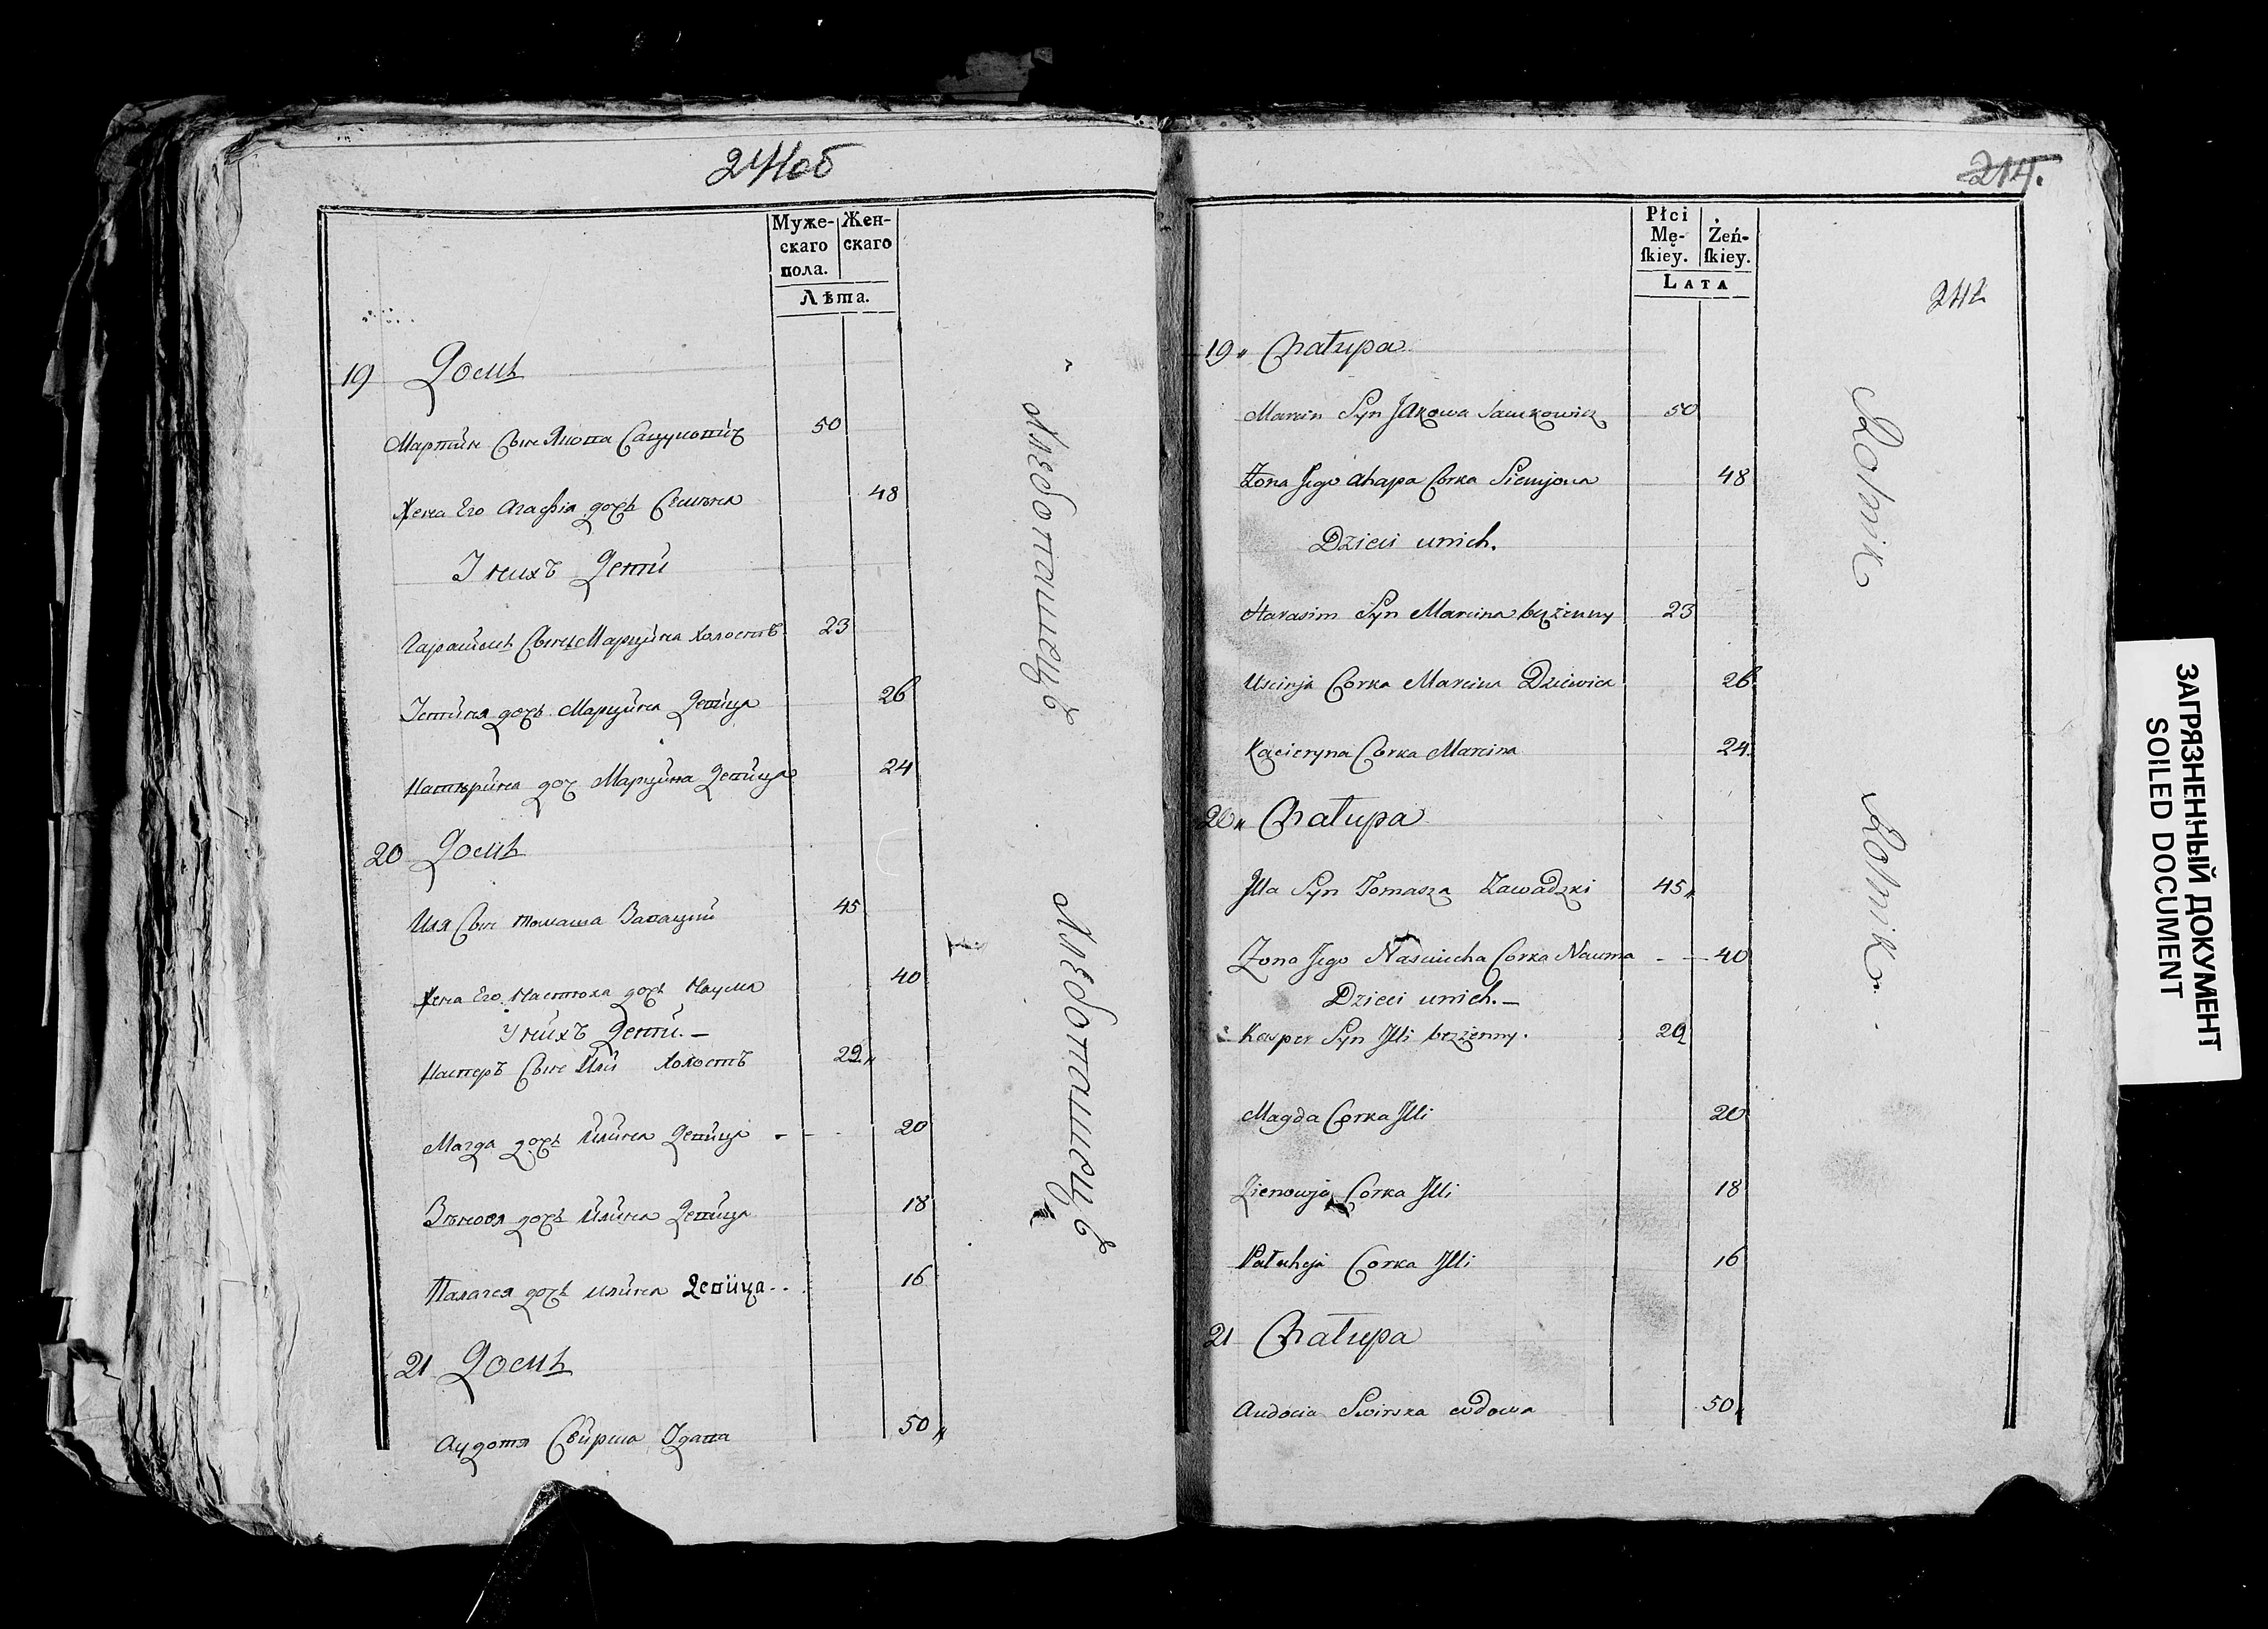 241об
Муже-
скаго
пола.
Жен-
скаго
Лѣта.
19 Домъ
Мартин Сын Якова Сацукевич 50
Жена Его Агафія дочь Семена 48
У нихъ Дети
Гарасимъ Сынъ Марцина Холостъ 23
Устиня дочь Марцина Девица 26
Катерина доч Марцина Девица 24
20 Домъ
Иля Сын Томаша Завацкий 45
Жена Его Настоха дочь Наума 40
У нихъ Дети.—
Касперъ Сын Или Холостъ 22
Магда дочь Илина Девица 20
Зѣновя дочь Илина Девица 18
Палагея дочь илина Девица 16
21 Домъ
Аудотя Свирска Удава 50
Хлебопашецъ
Хлебопашецъ
214.
242
Płci
Mę-
ſkiey.
Żeń-
ſkiey.
LATA
19 Chałupa
Marcin Syn Jakowa Sawkowicz 50
Żona Jego Ahapa Corka Siemjona 48
Dzieci unich.
Harasim Syn Marcina bezżenny 23
Uscinja Corka Marcina Dziewica 26
Kacieryna Corka Marcina 24
20 Chałupa
Jlla Syn Tomasza Zawadzki 45
Żona Jego Nasciucha Corka Nauma 40
Dzieci unich.—
Kasper Syn Jlli bezżenny. 22
Magda Corka Jlli 20
Zienowja Corka Jlli 18
Pałaheja Corka Jlli 16
21 Chałupa
Audocia Swirska wdowa 50
Rolnik
Rolnik
ЗАГРЯЗНЕННЫЙ ДОКУМЕНТ
SOILED DOCUMENT